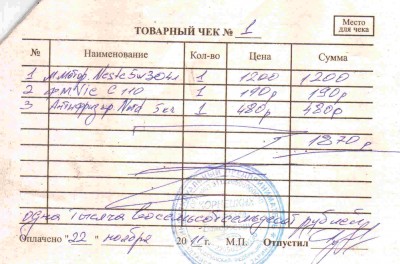 ТОВАРНЫЙ ЧЕК № 1
Место
для чека
№ Наименование Кол-во Цена Сумма
1 м.мотор. Neste 5w30 4л 1 1200 1200
2 ф. Vic C 110 1 190р 190р
3 Антифриз Nord 5кг 1 480р 480р
1870р
одна тысяча восемьсот семьдесят рублей
Оплачено "22" ноября 2011 г. М.П. Отпустил